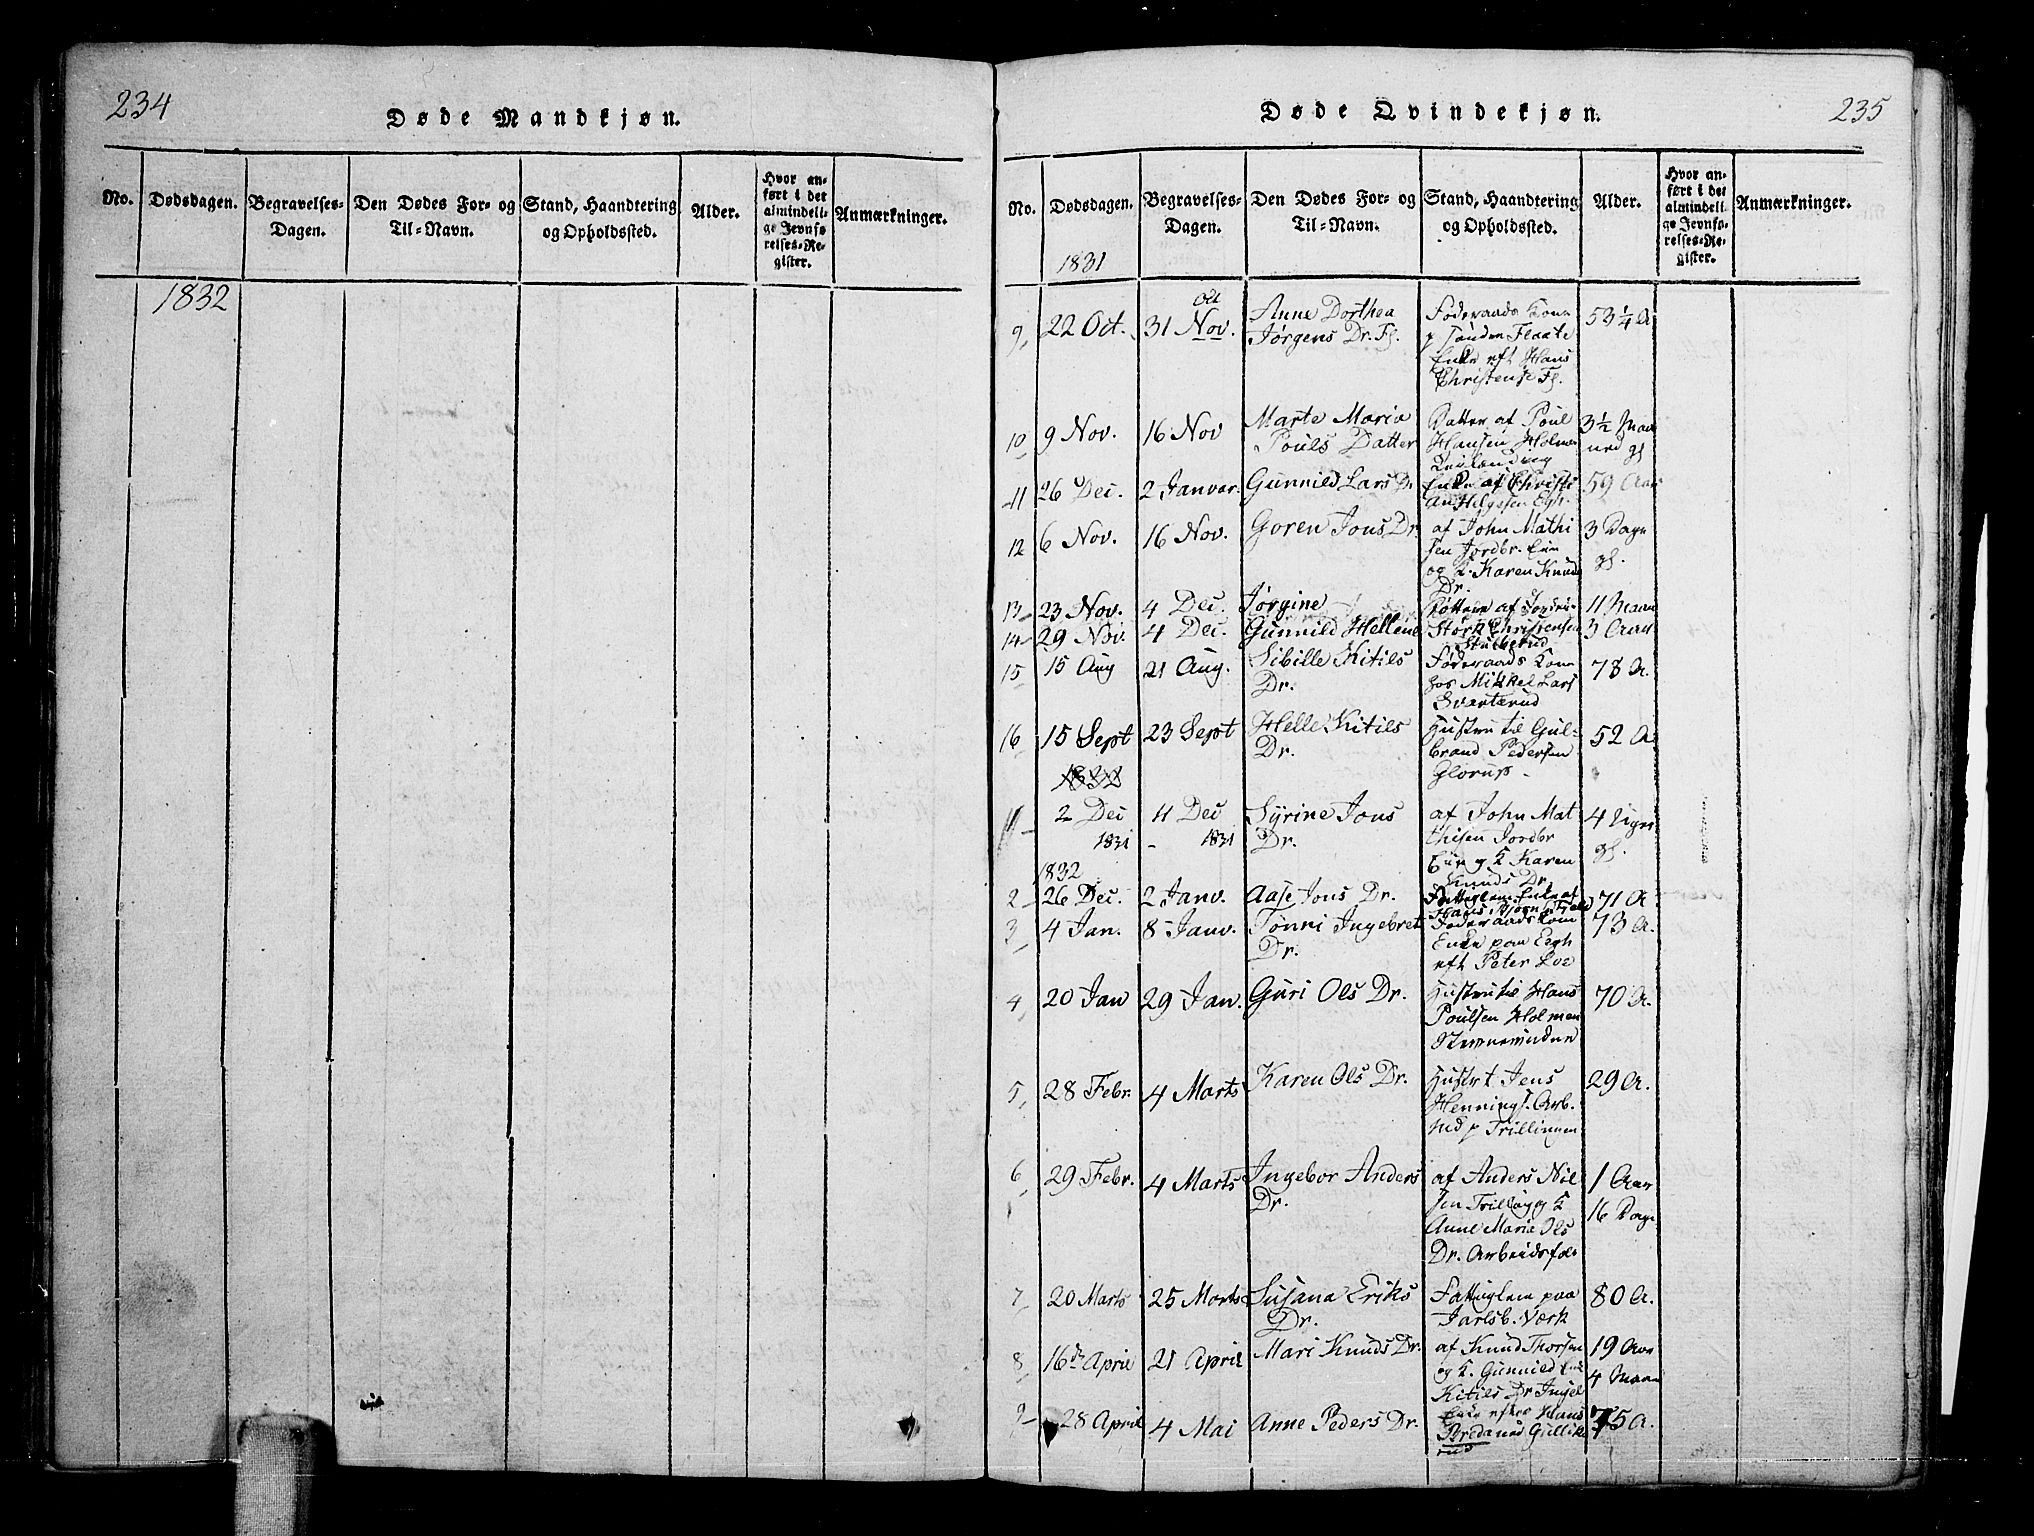 234
Døde Mandkjøn.
No.
Dødsdagen.
Begravelses-
Dagen.
Den Dødes For- og
Til-Navn.
Stand, Haandtering
og Opholdssted.
Alder.
Hvor an-
ført i det
almindeli-
ge Jevnfø-
relses-Re-
gister.
Anmærkninger.
1832
235
Døde Qvindekjøn.
No.
Dødsdagen.
1831
Begravelses-
Dagen.
Den Dødes For- og
Til-Navn.
Stand, Haandtering
og Opholdssted.
Alder.
Hvor an-
ført i det
almindeli-
ge Jevnfø-
relses-Re-
gister.
Anmærkninger.
9 22 Oct. 31 Nov. Oct Anne Dorthea
Jørgens Dr. Fl.
Føderaads Kone
p Sønden Flaate
Enke eft Hans
Christense Fl.
53 1/4 A
10 9 Nov. 16 Nov Marte Maria
Pouls Datter
Datter af Poul
Hansen Holmen
3 1/2 Maa
ned gl
11 26 Dec. 2 Januar. Gunnild Lars Dr
Enke af Christi
an Helgesen
59 Aar
12 6 Nov. 16 Nov. Goren Jons Dr.
af John Mathi
sen Jordbr. Eie
og K. Karen Knuds
Dr.
3 Dage
gl.
13 23 Nov. 4 Dec. Jørgine
Døttere af
11 Maan
14 29 Nov. 4 Dec. Gunnild Hellene
Christensen
3 Aar
15 15 Aug 21 Aug. Sibille Kitils
Dr.
Føderaads Kone
hos Mikkel Lars
Svartsrud
78 A.
16 15 Sept 23 Sept Helle Kitils
Dr.
Hustru til Gul-
brand Pedersen
Glorup
52 A
1832
2 Dec 11 Dec Syrine Jons
1831 - 1831 Dr.
af John Mat
thisen Jordbr
Eie og K Karen
Knuds Dr.
4 Uger
gl.
1832
2 26 Dec. 2 Janv. Aase Jons Dr.
Fattiglem Enke af
Hans
71 A
3 4 Jan. 8 Janv. Tonni Ingebret
Dr.
Føderaads Kone
Enke paa Eegh
eft Peter Loe
73 A.
4 20 Jan 29 Jan. Guri Ols Dr.
Hustru til Hans
Poulsen Holmen
70 A.
5 28 Febr. 4 Marts Karen Ols Dr.
Hustr t Jens
Hennings. Arb.
md p Trillingen
29 A.
6 29 Febr. 4 Marts Ingebor Anders
Dr.
af Anders Niel
sen Trilling og K
Anne Marie Ols
Dr. Arbeidsfolk
1 Aar
16 Dage
7 20 Marts 25 Marts Susana Eriks
Dr.
Fattiglem paa
Jarlsb. Værk
80 A.
8 16de April 21 April Mari Knuds Dr.
af Knud Thorsen
og K. Gunnild
Kitils Dr
19 Aar
4 Maan
9 28 April 4 Mai Anne Peders Dr.
Enke efter Hans
Bredanes Gullik
rud
75 A.